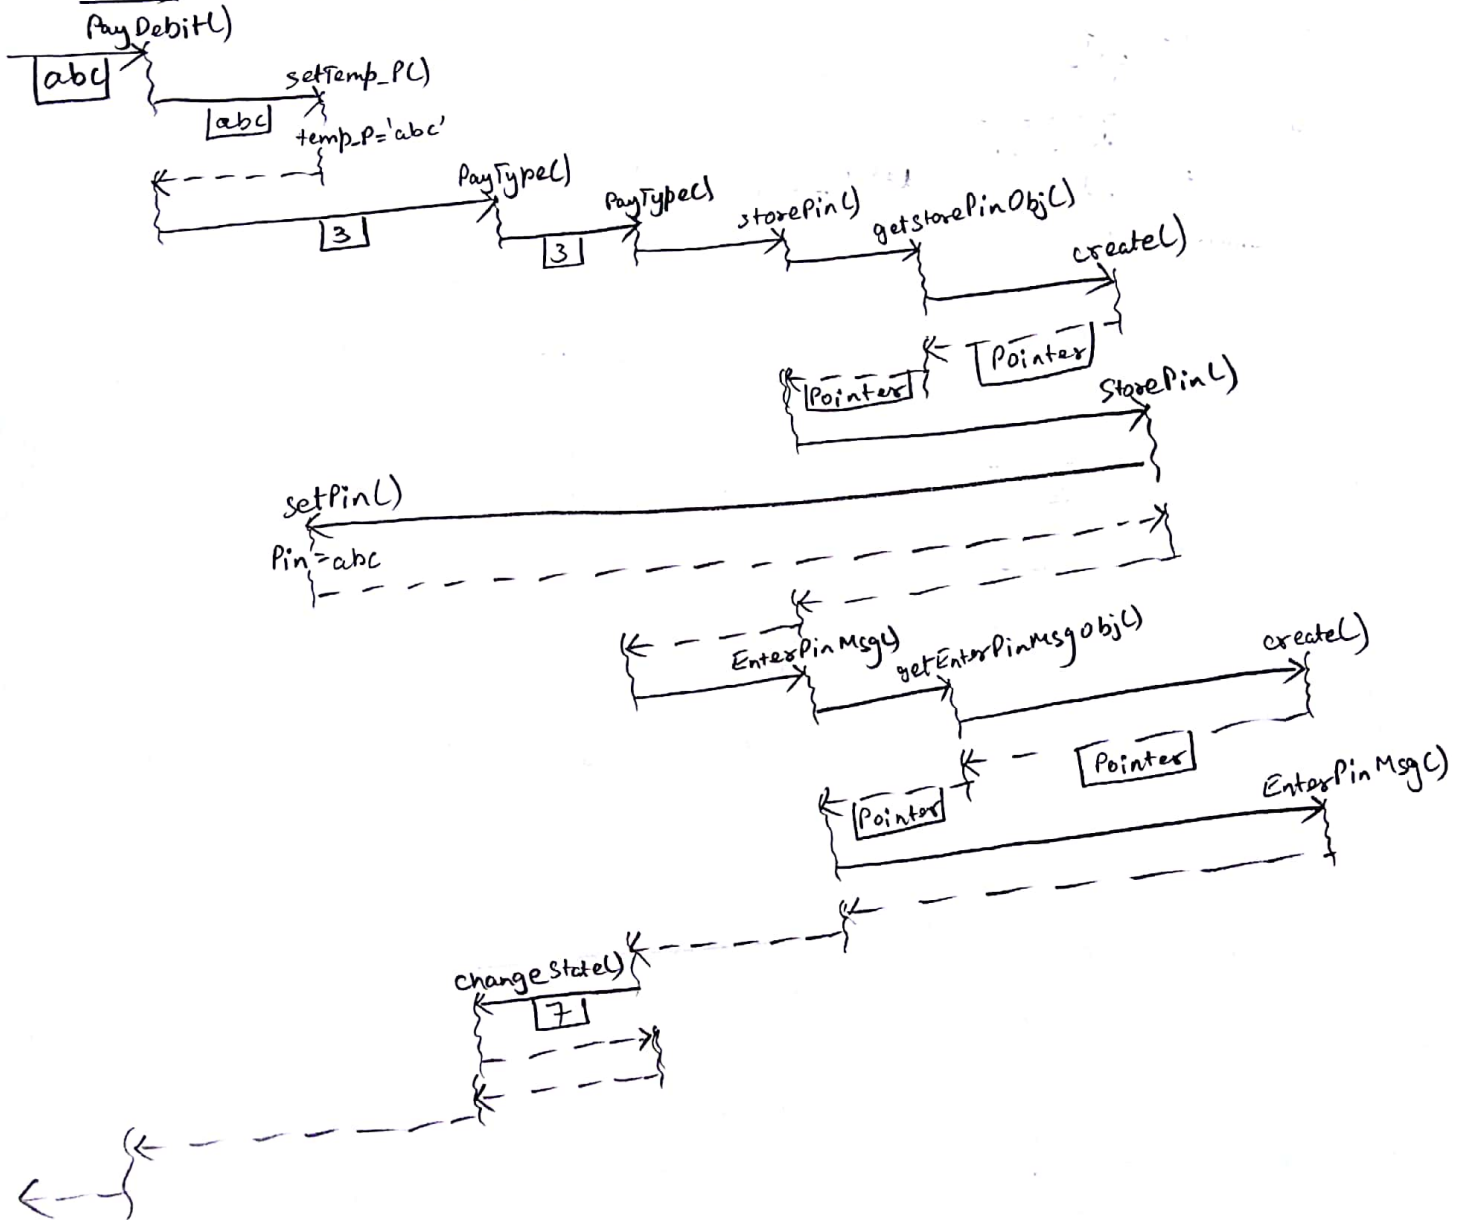 PayDebit()
abc
setTemp_P()
abc
temp_P='abc'
PayType()
3
PayType()
3
storePin()
getstorePinObj()
create()
Pointer
Pointer
StorePin()
setPin()
Pin=abc
EnterPinMsg()
getEnterPinMsgObj()
create()
Pointer
Pointer
EnterPinMsg()
changeState()
7